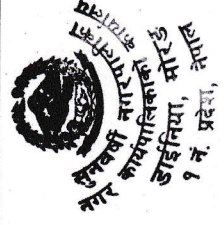 सुनवर्षी नगरपालिका
नगर कार्यपालिकाको कार्यालय
डाईनिया, मोरङ
१ नं. प्रदेश, नेपाल